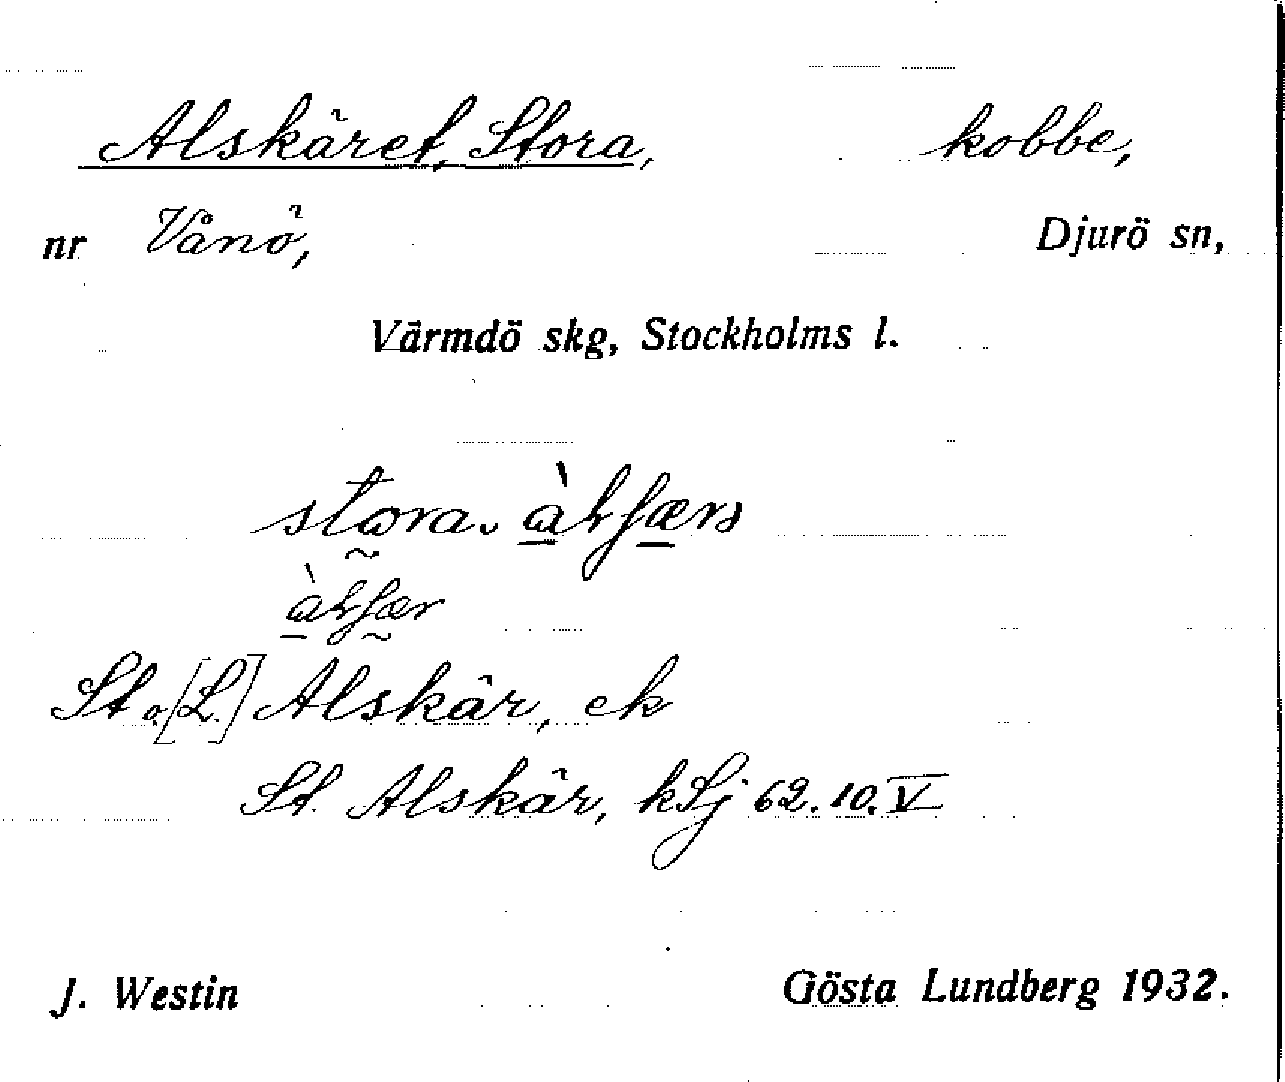 Alskäret, Stora, kobbe,
nr Vånö, Djurö sn,
Värmdö skg, Stockholms l.
stora
St o. [L.] Alskär, ek
St. Alskär, kSj 62.10.V
J. Westin Gösta Lundberg 1932.